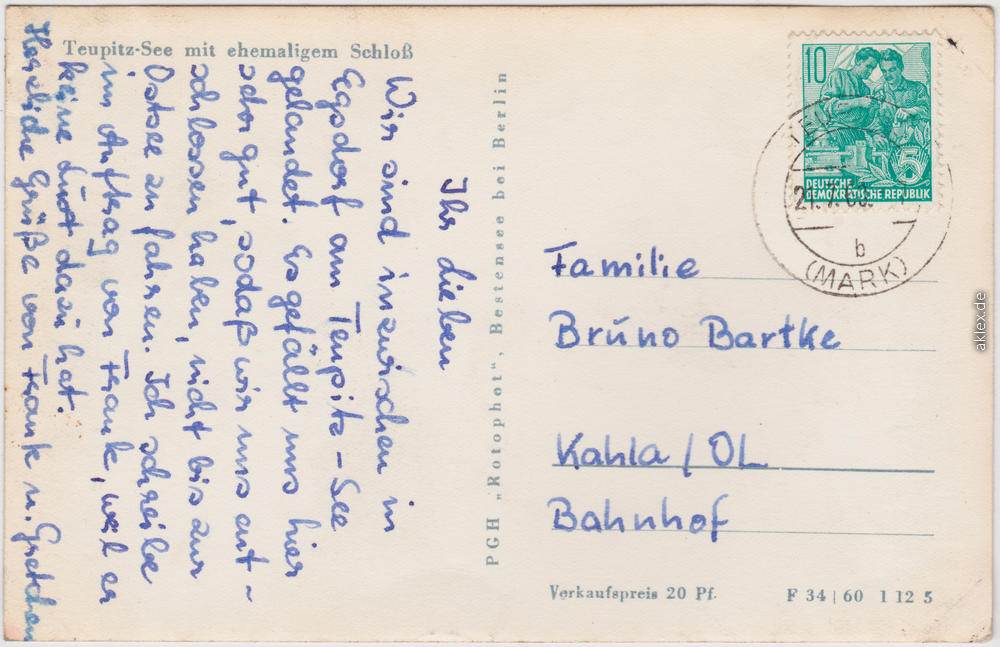 Teupitz-See mit ehemaligem Schloß
Ihr Lieben
Wir sind inzwischen in
Egsdorf am Teupitz-See
gelandet. Es gefällt uns hier
sehr gut, sodaß wir uns ent-
schlossen haben, nicht bis zur
Ostsee zu fahren. Ich schreibe
im Auftrag von Frank, weil er
keine Lust dazu hat.
Herzliche Grüße von Frank u. Gretchen
PGH „Rotophot“, Bestensee bei Berlin
10
5
DEUTSCHE
DEMOKRATISCHE REPUBLIK
TEU
b
(MARK)
Familie
Bruno Bartke
Kahla / OL
Bahnhof
Verkaufspreis 20 Pf.
F 34 | 60 1 12 5
aklex.de